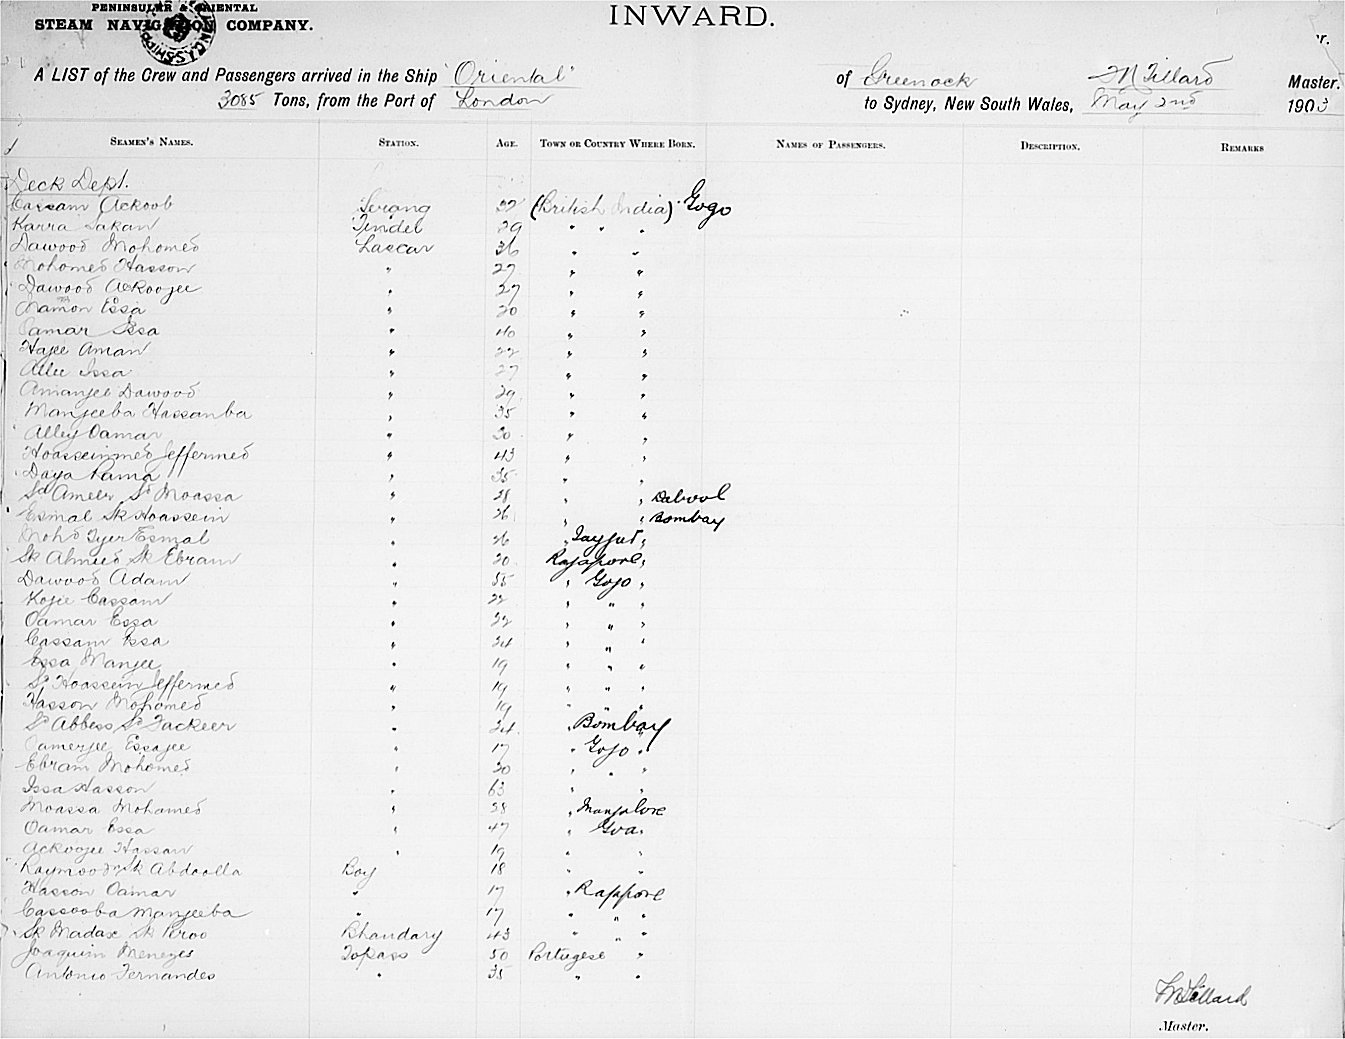 PENINSULAR & ORIENTAL
STEAM NAVIGATION COMPANY.
INWARD.
A LIST of the Crew and Passengers arrived in the Ship "Oriental" of Greenock Tillard Master.
3085 Tons, from the Port of London to Sydney, New South Wales, May 2nd 1903
SEAMEN'S NAMES. STATION. AGE. TOWN OR COUNTRY WHERE BORN. NAMES OF PASSENGERS. DESCRIPTION. REMARKS
Deck Dept.
Cassam Ackoob Serang 32 (British India) Gogo
Karra Lakan Tindel 29 " " "
Dawood Mohomed Lascar 36 " "
Mohomed Hasson " 27 " "
Dawood Ackoojee " 27 " "
Mamon Essa " 20 " "
Oamar Issa " 40 " "
Hajee Aman " 22 " "
Allee Issa " 27 " "
Amanjee Dawood " 29 " "
Manjeeba Hassanba " 35 " "
Alley Oamar " 30 " "
Hoasseinmed Jeffermed " 43 " "
Daya Rama " 35 " "
Sd Ameer Sd Moassa " 28 " " Dabool
Esmal Sk Hoassein " 26 " " Bombay
Mohd Esmal " 26 " "
Sk Ahmed Sk Ebram " 20 Rajapore "
Dawood Adam " 55 " Gogo "
Kojie Cassam " 22 " " "
Oamar Essa " 22 " " "
Cassam Essa " 24 " " "
Essa Manjee " 19 " " "
Sd Hoassein Jeffermed " 19 " " "
Hasson Mohomed " 19 " " "
Sd Abbess Sd Fackeer " 24 " Bombay "
Oamerjee Essajee " 17 " Gogo "
Ebram Mohomed " 20 " " "
Issa Hasson " 63 " "
Moassa Mohamed " 28 " Mangalore
Oamar Essa " 47 " Goa "
Ackoojee Hassan " 19 " "
Sk Abdoolla Boy 18 " "
Hasson Oamar " 17 " Rajapore
Cassooba Manjeeba " 17 " " "
Sk Madar Sk Peroo Bhandary 43 " " "
Joaquim Menezes Topass 50 Portugese "
Antonio Fernandes " 35 " "
Tillard
Master.